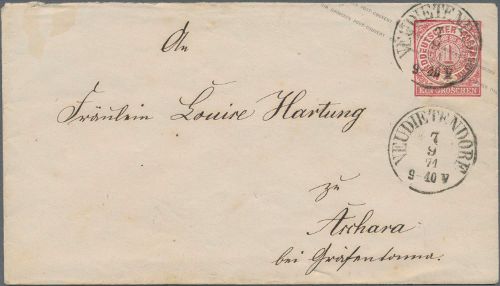 NEUDIETENDORF
9-10 V
NORDDEUTSCHER POSTBEZIRK
1
EIN GROSCHEN
An
Fräulein Louise Hartung
NEUDIETENDORF
7
9
71
9-10 V
zu
Aschara
bei Gräfentonna.